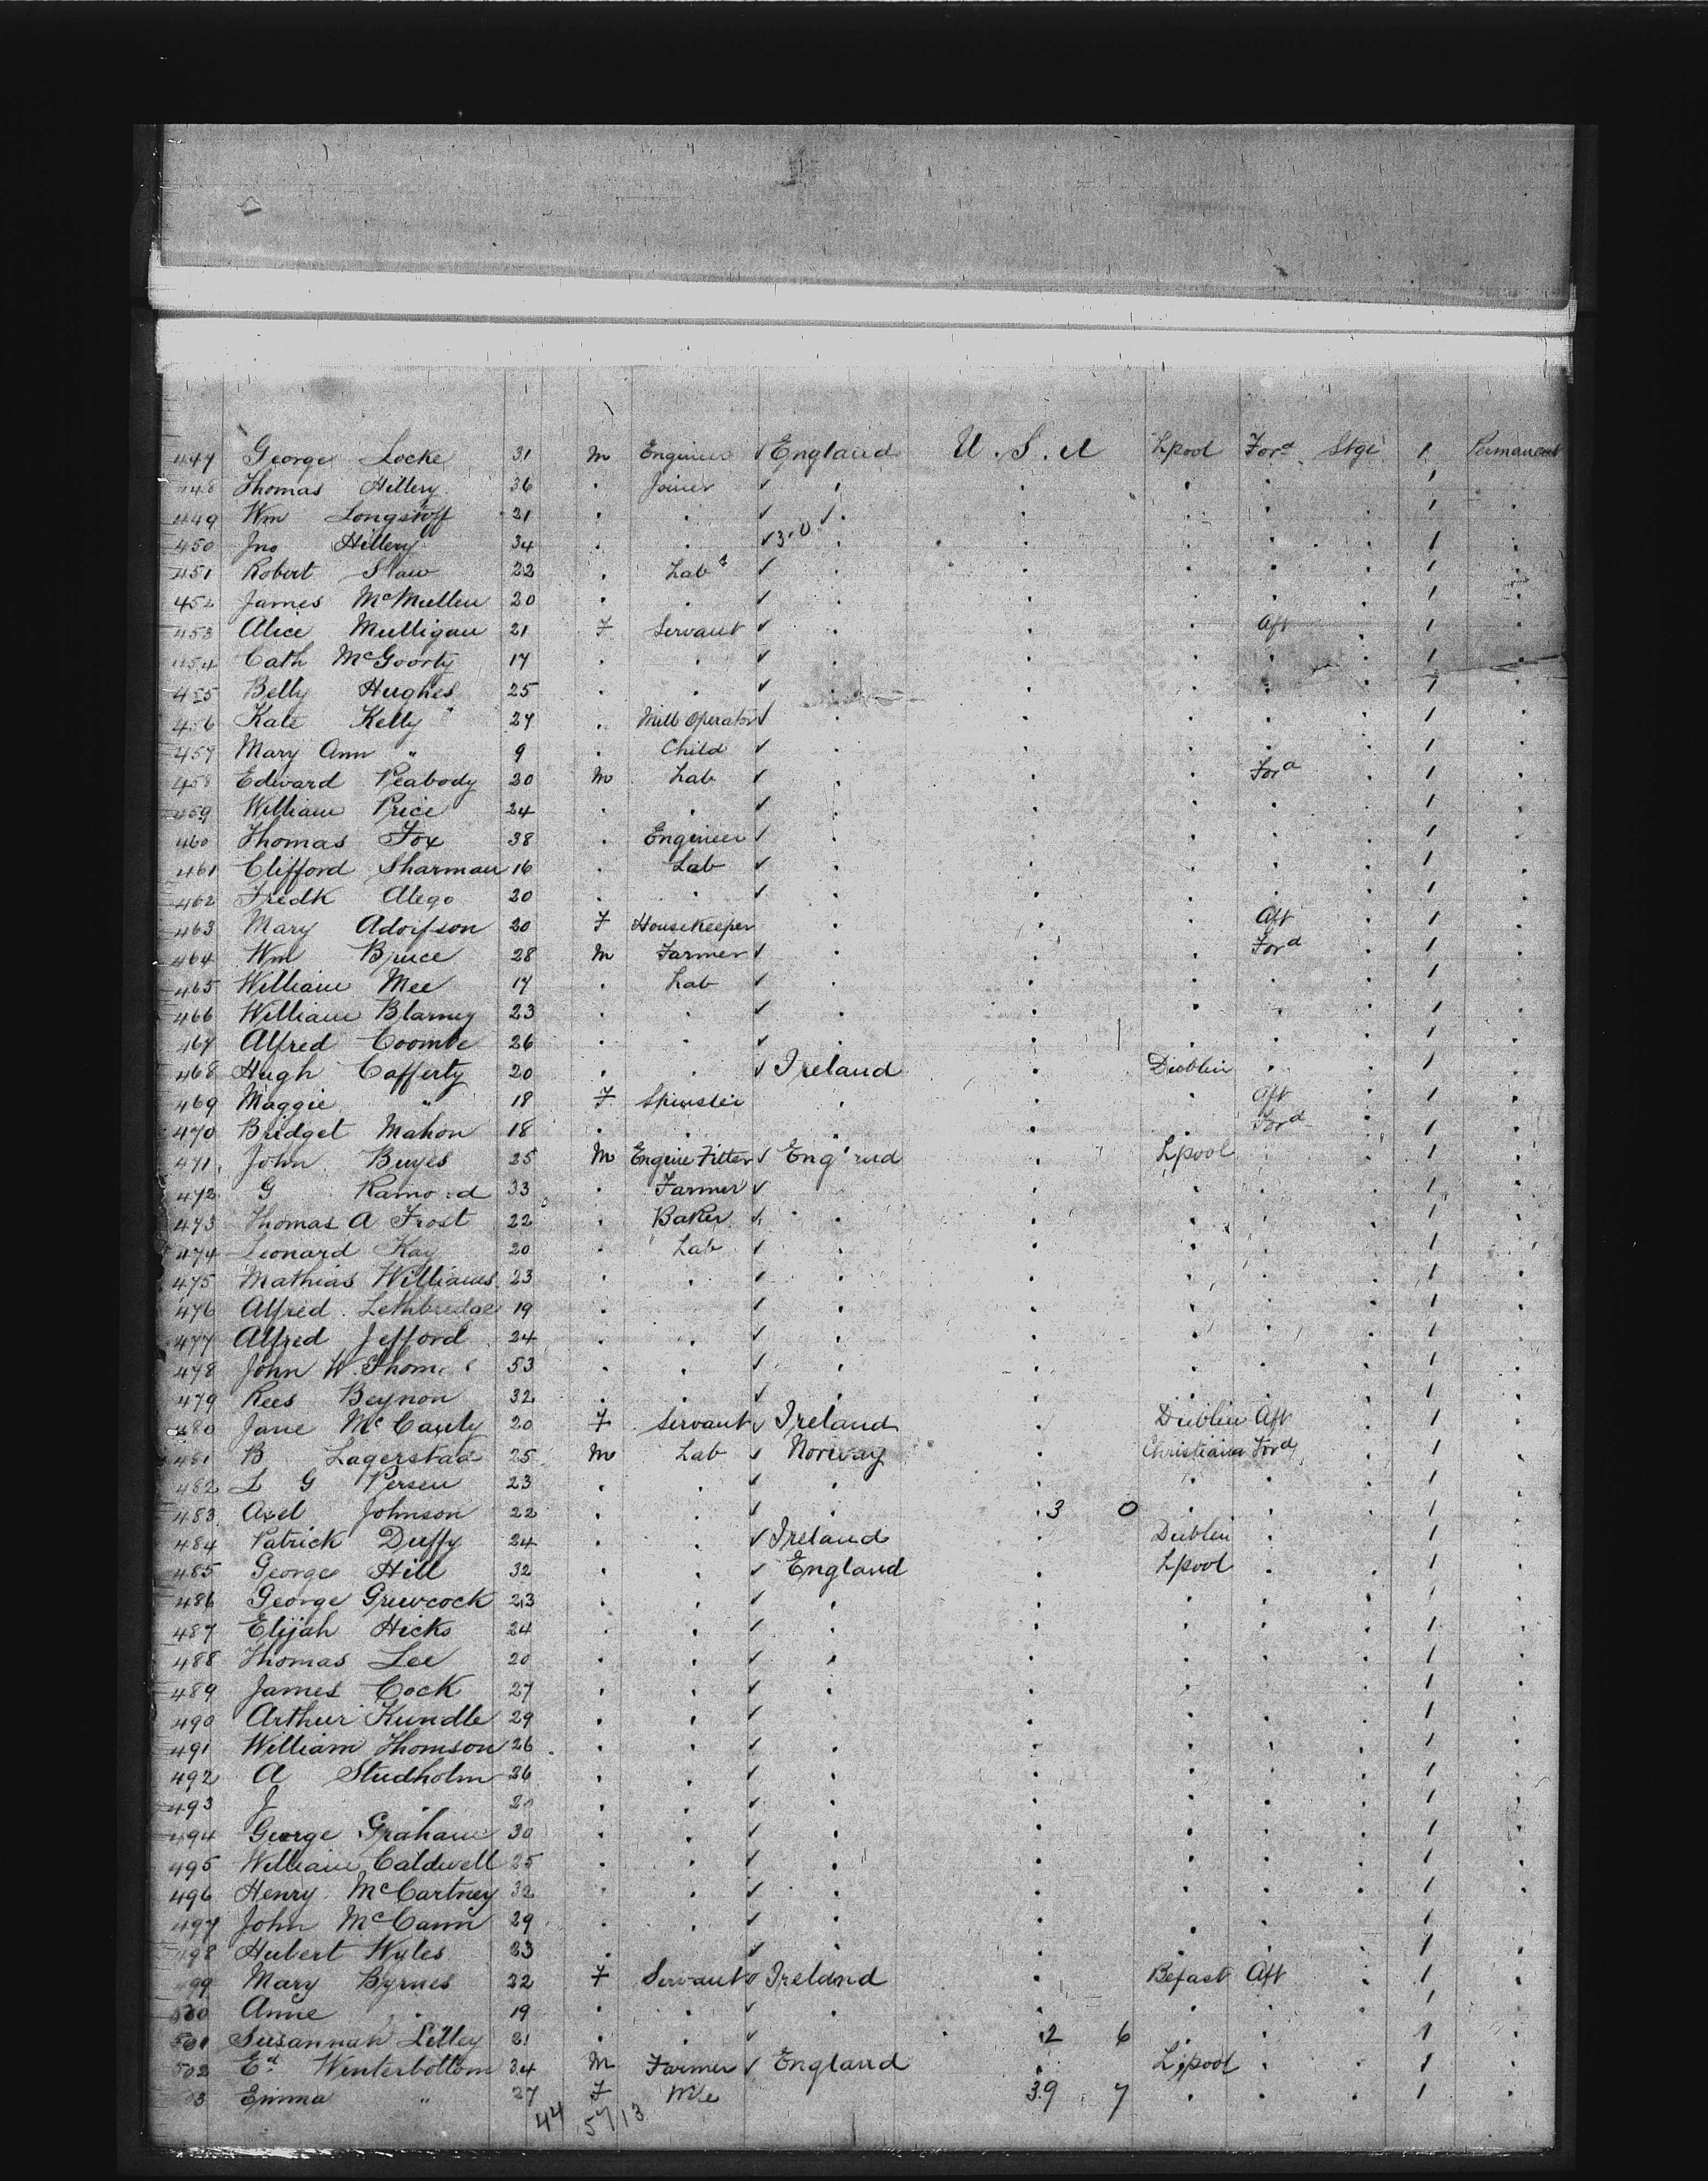 447 George Locke 31 m Engineer ✓ England U.S.A Lpool Ford Stge 1 Permanent
448 Thomas Hillery 36 " Joiner ✓ 1
449 Wm Longstoff 21 ✓ 1
450 Jno Hillery 34 ✓ 3.0 1
451 Robert Slaw 22 Lab ✓ 1
452 James McMullen 20 ✓ 1
453 Alice Mulligan 21 F Servant ✓ Aft 1
454 Cath McGoorty 17 ✓ 1
455 Belly Hughes 25 ✓ 1
456 Kate Kelly 27 Mill Operator ✓ 1
457 Mary Ann " 9 Child ✓ 1
458 Edward Peabody 20 m Lab ✓ Ford 1
459 William Price 24 ✓ 1
460 Thomas Fox 38 Engineer ✓ 1
461 Clifford Sharman 16 Lab ✓ 1
462 Fredk Alego 20 ✓ 1
463 Mary Adolfson 20 F Housekeeper Aft 1
464 Wm Bruce 28 m Farmer ✓ Ford 1
465 William Mee 17 Lab ✓ 1
466 William Blarney 23 ✓ 1
467 Alfred Coombe 26 ✓ 1
468 Hugh Cafferty 20 ✓ Ireland Dublin 1
469 Maggie " 18 F Spinster Aft 1
470 Bridget Mahon 18 Ford 1
471 John Buyes 25 M Engine Fitter ✓ England Lpool 1
472 G 33 Farmer ✓ 1
473 Thomas A Frost 22 Baker ✓ 1
474 Leonard Kay 20 Lab ✓ 1
475 Mathias Williams 23 ✓ 1
476 Alfred Lethbridge 19 ✓ 1
477 Alfred Jefford 24 ✓ 1
478 John W. 53 ✓ 1
479 Rees Beynon 32 ✓ 1
480 Jane McCauly 20 F Servant ✓ Ireland Dublin Aft 1
481 B Lagerstad 25 m Lab ✓ Norway Christiana Ford 1
482 L G Persen 23 ✓ 1
483 Axel Johnson 22 ✓ 3 0 1
484 Patrick Duffy 24 ✓ Ireland Dublin 1
485 George Hill 32 ✓ England Lpool 1
486 George Gruwcock 23 ✓ 1
487 Elijah Hicks 24 ✓ 1
488 Thomas Lee 20 ✓ 1
489 James Cock 27 ✓ 1
490 Arthur Kundle 29 ✓ 1
491 William Thomson 26 ✓ 1
492 A Studholm 26 ✓ 1
493 J " 20 ✓ 1
494 George Graham 30 ✓ 1
495 William Caldwell 25 ✓ 1
496 Henry McCartney 32 ✓ 1
497 John McCann 29 ✓ 1
498 Hubert Wyles 23 ✓ 1
499 Mary Byrnes 22 F Servant Ireland Befast Aft 1
500 Anne " 19 ✓ 1
501 Susannah Lilley 21 ✓ 2 6 1
502 Ed Winterbottom 34 M Farmer ✓ England Lpool 1
503 Emma " 27 F 39 7 1
44 57/13